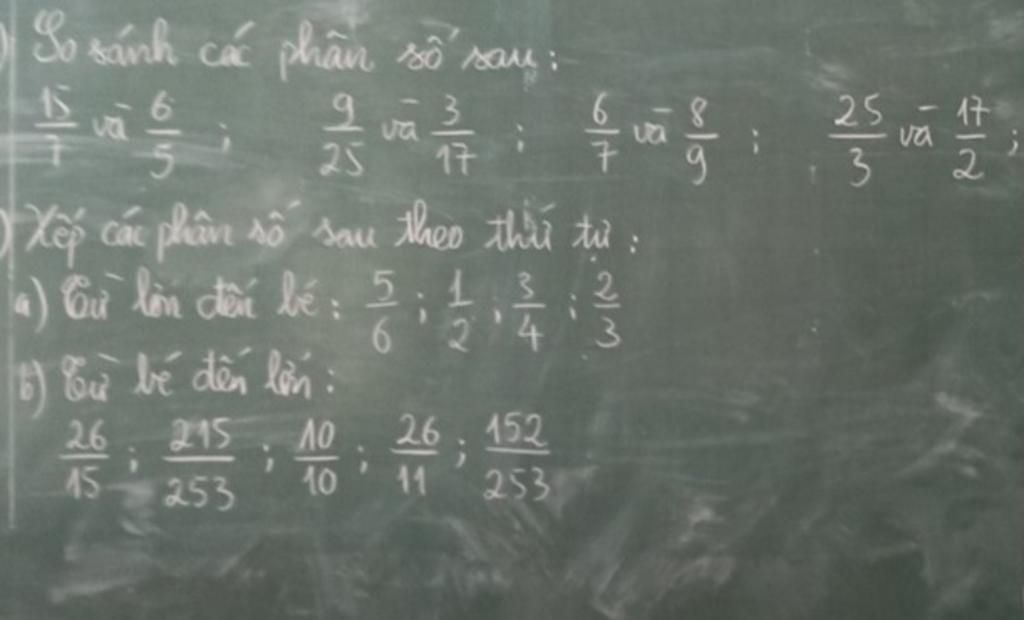 ) So sánh các phân số sau:
15/7 và 6/5 ; 9/25 và 3/17 ; 6/7 và 8/9 ; 25/3 và 17/2 ;
) Xếp các phân số sau theo thứ tự:
a) Từ lớn đến bé: 5/6 ; 1/2 ; 3/4 ; 2/3
b) Từ bé đến lớn:
26/15 ; 215/253 ; 10/10 ; 26/11 ; 152/253